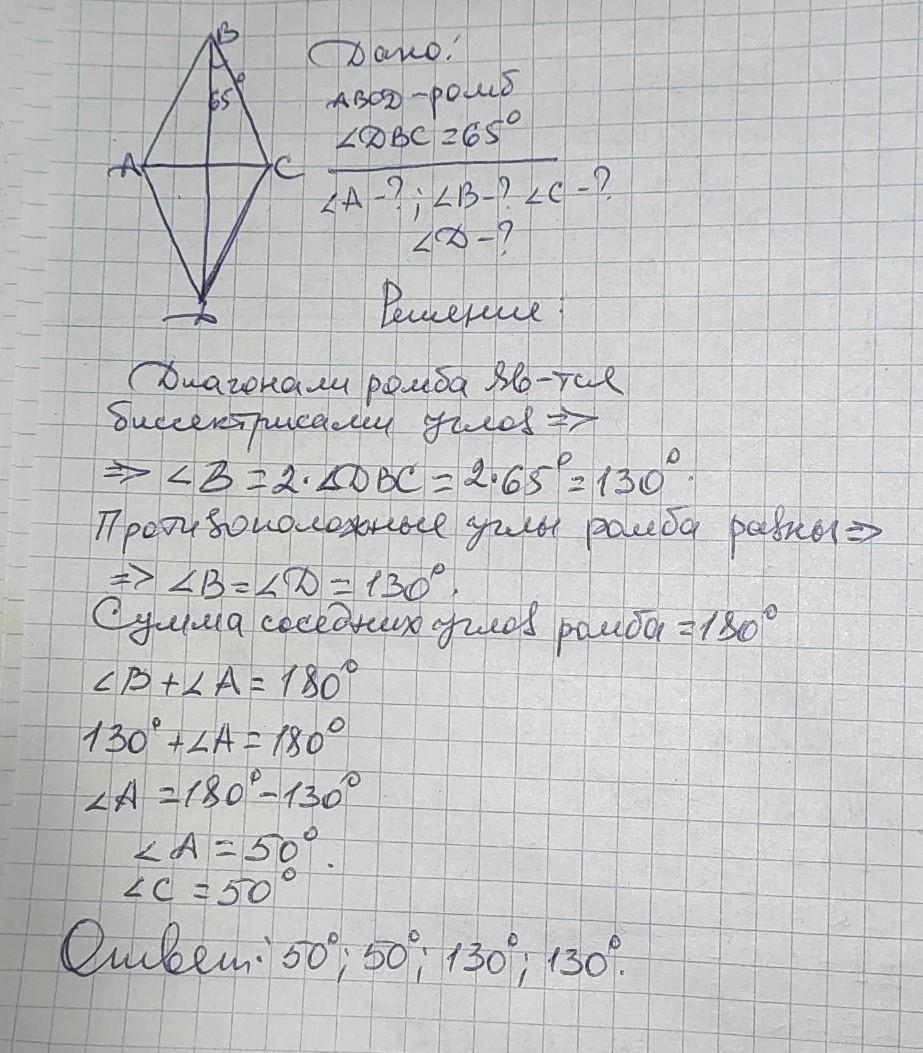 B
65°
A
C
D
Дано:
ABCD-ромб
∠DBC=65°
∠A-?; ∠B-? ∠C-?
∠D-?
Решение:
Диагонали ромба яв-тся
биссектрисами углов =>
=> ∠B=2·∠DBC=2·65°=130°.
Противоположные углы ромба равны =>
=> ∠B=∠D=130°.
Сумма соседних углов ромба =180°
∠B+∠A=180°
130°+∠A=180°
∠A=180°-130°
∠A=50°.
∠C=50°
Ответ: 50°; 50°; 130°; 130°.